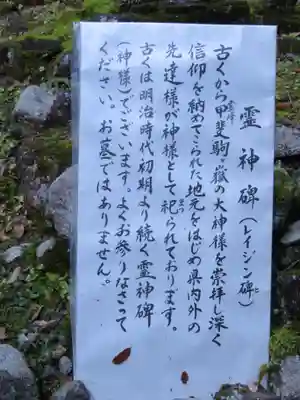 霊神碑(レイジン碑)
古くから甲斐駒ヶ嶽の大神様を崇拝し深く
信仰を納めてこられた地元をはじめ県内外の
先達様が神様として祀られております。
古くは明治時代初期より続く霊神碑
(神様)でございます。よくお参りなさって
ください。お墓ではありません。